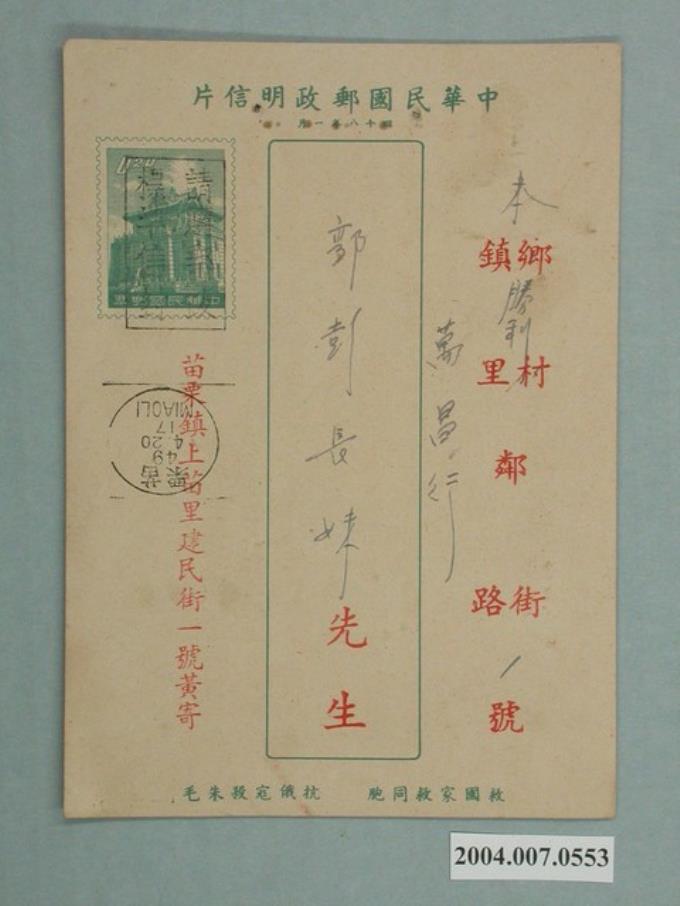 中華民國郵政明信片
四十八年一月
本
鄉鎮
勝利
村里
鄰
街路
1
號
萬昌行
郭彭長妹
先生
苗栗鎮上苗里建民街一號黃寄
中華民國郵票
MIAOLI
17
4.20
49
苗栗
救國家救同胞 抗俄寇殺朱毛
2004.007.0553